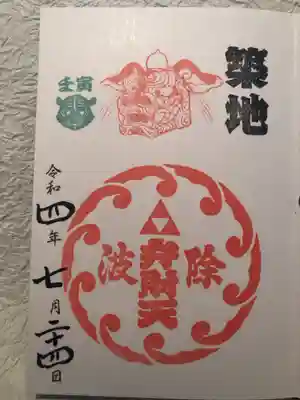 築地
壬寅
波除
弁財天
令和四年七月二十四日